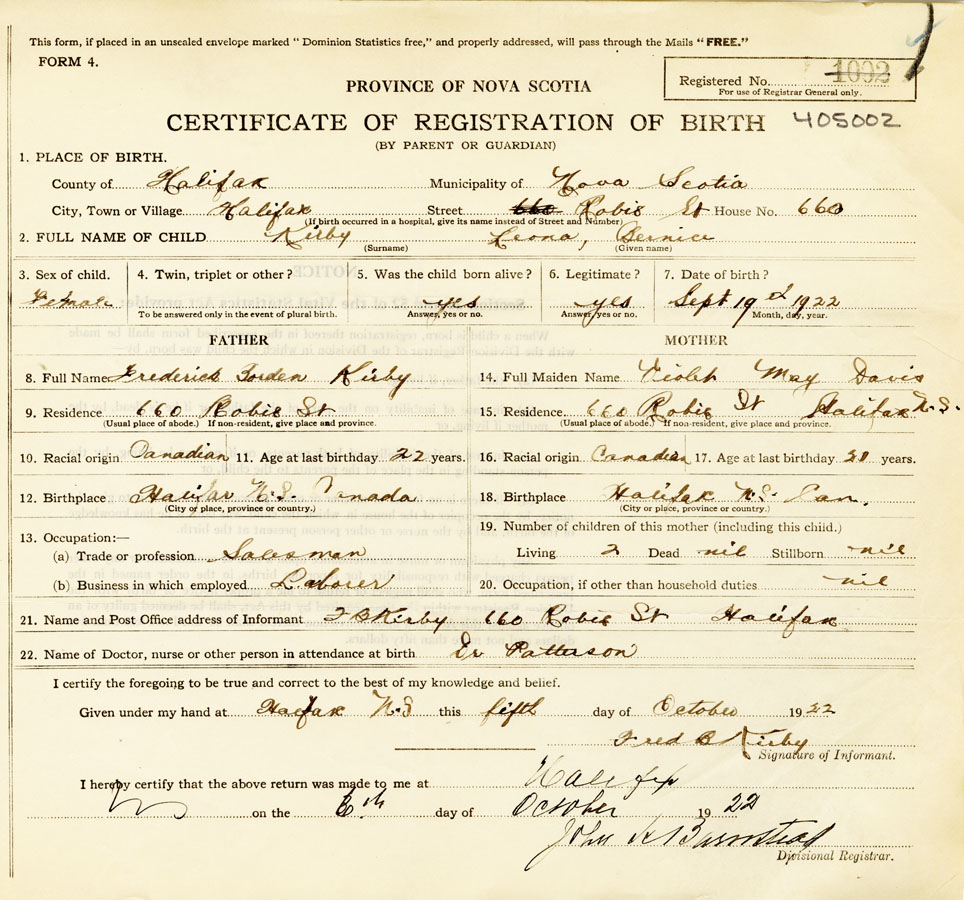 This form, if placed in an unsealed envelope marked "Dominion Statistics free," and properly addressed, will pass through the Mails "FREE."
FORM 4.
Registered No. 1092
For use of Registrar General only.
PROVINCE OF NOVA SCOTIA
CERTIFICATE OF REGISTRATION OF BIRTH 405002
(BY PARENT OR GUARDIAN)
1. PLACE OF BIRTH.
County of Halifax Municipality of Nova Scotia
City, Town or Village Halifax Street 660 Robie St House No. 660
(If birth occurred in a hospital, give its name instead of Street and Number)
2. FULL NAME OF CHILD Kirby Leona, Bernice
(Surname) (Given name)
3. Sex of child. 4. Twin, triplet or other? 5. Was the child born alive? 6. Legitimate? 7. Date of birth?
Female yes yes Sept 19 1922
To be answered only in the event of plural birth. Answer, yes or no. Answer, yes or no. Month, day, year.
FATHER MOTHER
8. Full Name Frederick Kirby 14. Full Maiden Name Violet May Davis
9. Residence 660 Robie St 15. Residence 660 Robie St Halifax N.S.
(Usual place of abode.) If non-resident, give place and province. (Usual place of abode.) If non-resident, give place and province.
10. Racial origin Canadian 11. Age at last birthday 22 years. 16. Racial origin Canadian 17. Age at last birthday years.
12. Birthplace Halifax N.S. Canada 18. Birthplace Halifax N.S. Can.
(City or place, province or country.) (City or place, province or country.)
13. Occupation:— 19. Number of children of this mother (including this child.)
(a) Trade or profession Salesman Living 2 Dead nil Stillborn nil
(b) Business in which employed Laborer 20. Occupation, if other than household duties nil
21. Name and Post Office address of Informant Kirby 660 Robie St Halifax
22. Name of Doctor, nurse or other person in attendance at birth Dr Patterson
I certify the foregoing to be true and correct to the best of my knowledge and belief.
Given under my hand at Halifax N.S this fifth day of October 1922
Fred Kirby
Signature of Informant.
I hereby certify that the above return was made to me at Halifax
on the 6th day of October 1922
John Barnstead
Divisional Registrar.